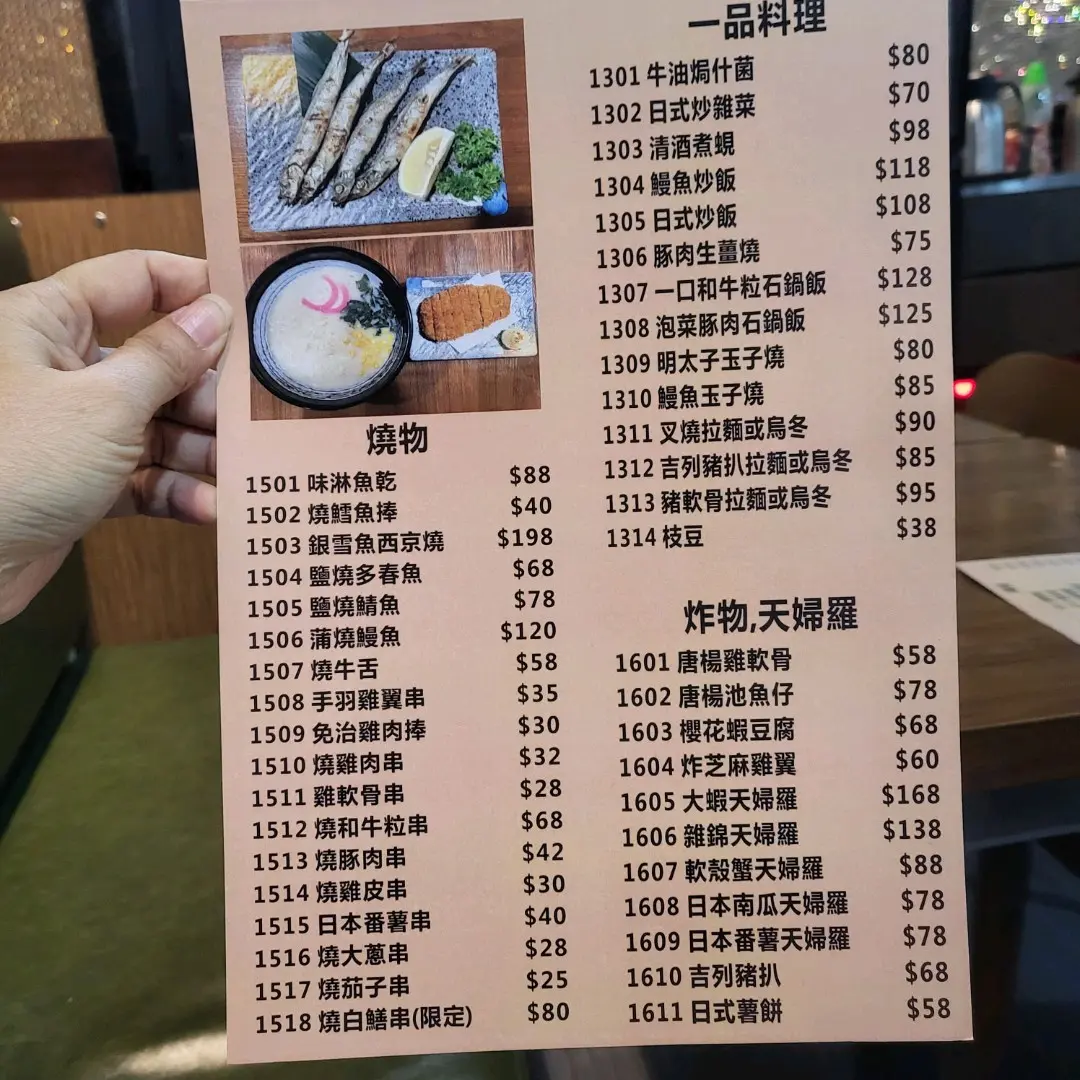 燒物
1501 味淋魚乾 $88
1502 燒鱈魚捧 $40
1503 銀雪魚西京燒 $198
1504 鹽燒多春魚 $68
1505 鹽燒鯖魚 $78
1506 蒲燒鰻魚 $120
1507 燒牛舌 $58
1508 手羽雞翼串 $35
1509 免治雞肉捧 $30
1510 燒雞肉串 $32
1511 雞軟骨串 $28
1512 燒和牛粒串 $68
1513 燒豚肉串 $42
1514 燒雞皮串 $30
1515 日本番薯串 $40
1516 燒大蔥串 $28
1517 燒茄子串 $25
1518 燒白鱔串(限定) $80
一品料理
1301 牛油焗什菌 $80
1302 日式炒雜菜 $70
1303 清酒煮蜆 $98
1304 鰻魚炒飯 $118
1305 日式炒飯 $108
1306 豚肉生薑燒 $75
1307 一口和牛粒石鍋飯 $128
1308 泡菜豚肉石鍋飯 $125
1309 明太子玉子燒 $80
1310 鰻魚玉子燒 $85
1311 叉燒拉麵或烏冬 $90
1312 吉列豬扒拉麵或烏冬 $85
1313 豬軟骨拉麵或烏冬 $95
1314 枝豆 $38
炸物,天婦羅
1601 唐楊雞軟骨 $58
1602 唐楊池魚仔 $78
1603 櫻花蝦豆腐 $68
1604 炸芝麻雞翼 $60
1605 大蝦天婦羅 $168
1606 雜錦天婦羅 $138
1607 軟殼蟹天婦羅 $88
1608 日本南瓜天婦羅 $78
1609 日本番薯天婦羅 $78
1610 吉列豬扒 $68
1611 日式薯餅 $58